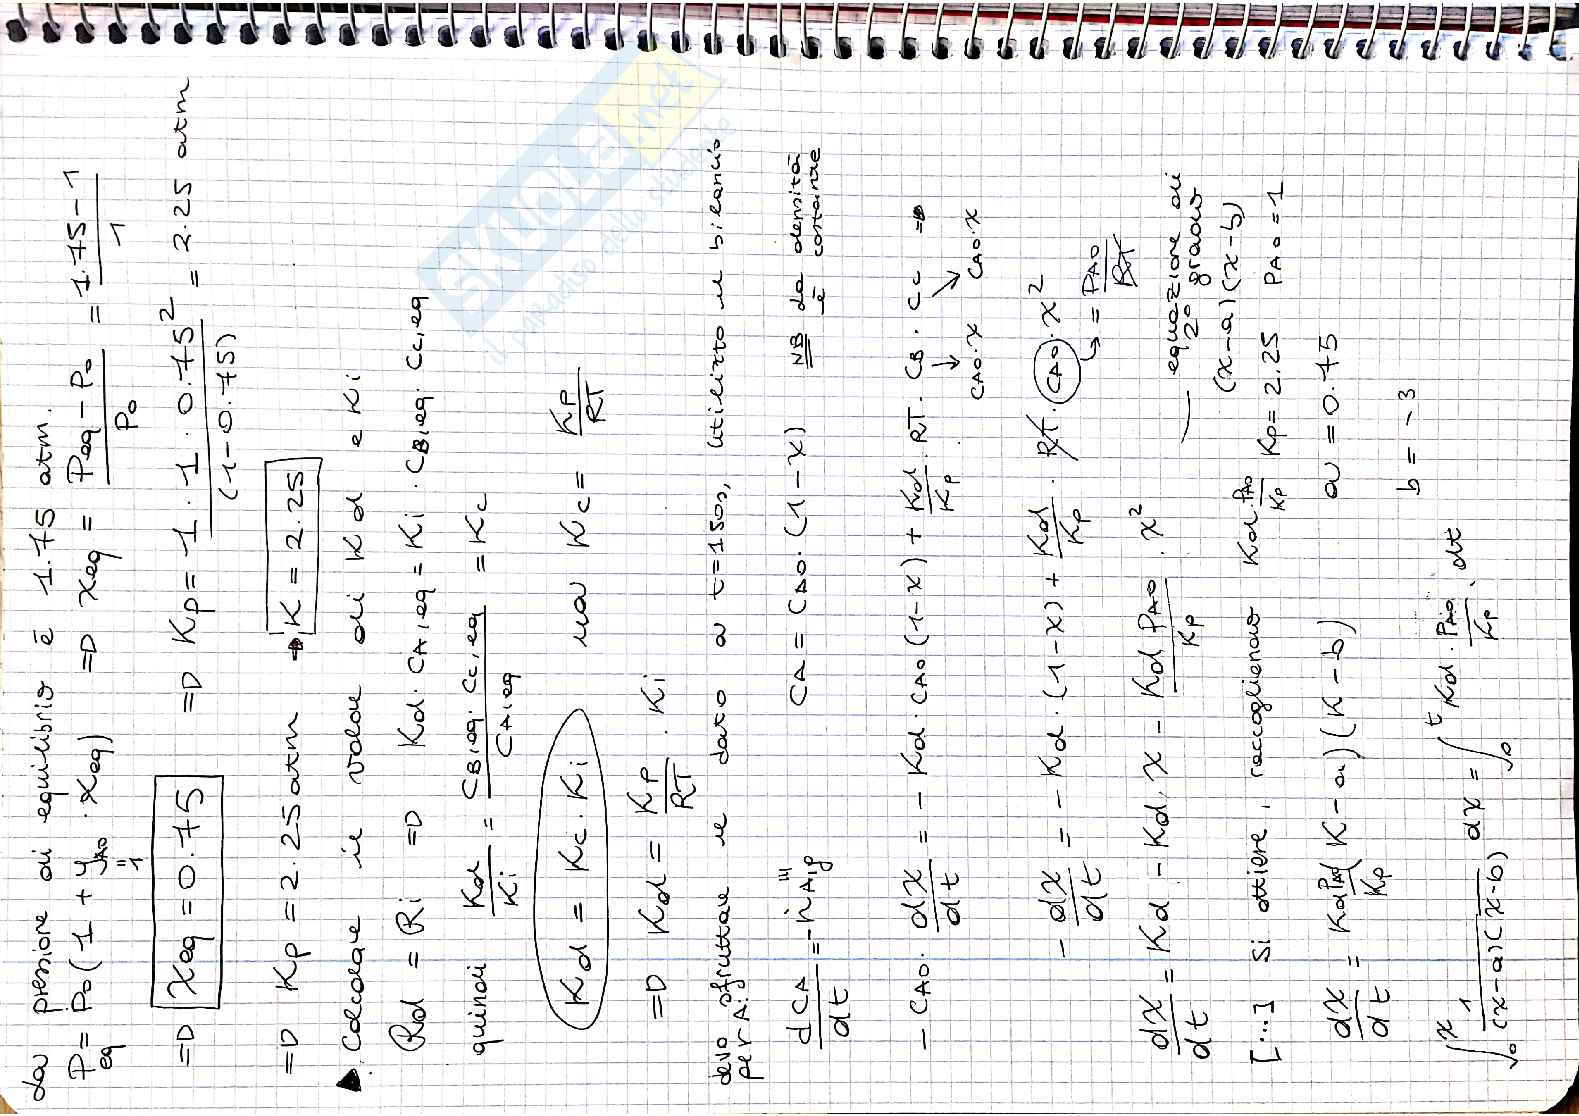 La pressione di equilibrio è 1.75 atm.
Peq = P0 (1 + yA0 · xeq) => xeq = (Peq - P0) / P0 = (1.75 - 1) / 1
=1
=> xeq = 0.75 => Kp = 1 · 1 · 0.75² / (1 - 0.75) = 2.25 atm
=> Kp = 2.25 atm → K = 2.25
▲. Calcolare il valore di Kd e Ki
Rd = Ri => Kd · CA,eq = Ki · CB,eq · CC,eq
quindi Kd / Ki = CB,eq · CC,eq / CA,eq = KC
Kd = Kc · Ki ma Kc = Kp / RT
=> Kd = Kp / RT · Ki
devo sfruttare il dato a t=150s, utilizzo il bilancio
per A:
dCA / dt = -ṅ'''A,g CA = CA0 · (1 - x) NB la densità è costante
- CA0 · dx/dt = - Kd · CA0 (1 - x) + Kd/Kp · RT · CB · CC =>
CA0·x CA0·x
- dx/dt = - Kd · (1 - x) + Kd/Kp · RT · CA0 · x²
↳ = PA0 / RT
dx/dt = Kd - Kd · x - Kd PA0 / Kp · x² — equazione di 2° grado
(x-a)(x-b)
[...] Si ottiene, raccogliendo Kd · PA0/Kp Kp = 2.25 PA0 = 1
dx/dt = Kd PA0/Kp (x - a)(x - b) a = 0.75
b = -3
∫₀ˣ 1 / (x-a)(x-b) dx = ∫₀ᵗ Kd · PA0/Kp · dt
SKUOLA.net
il paradiso dello studente